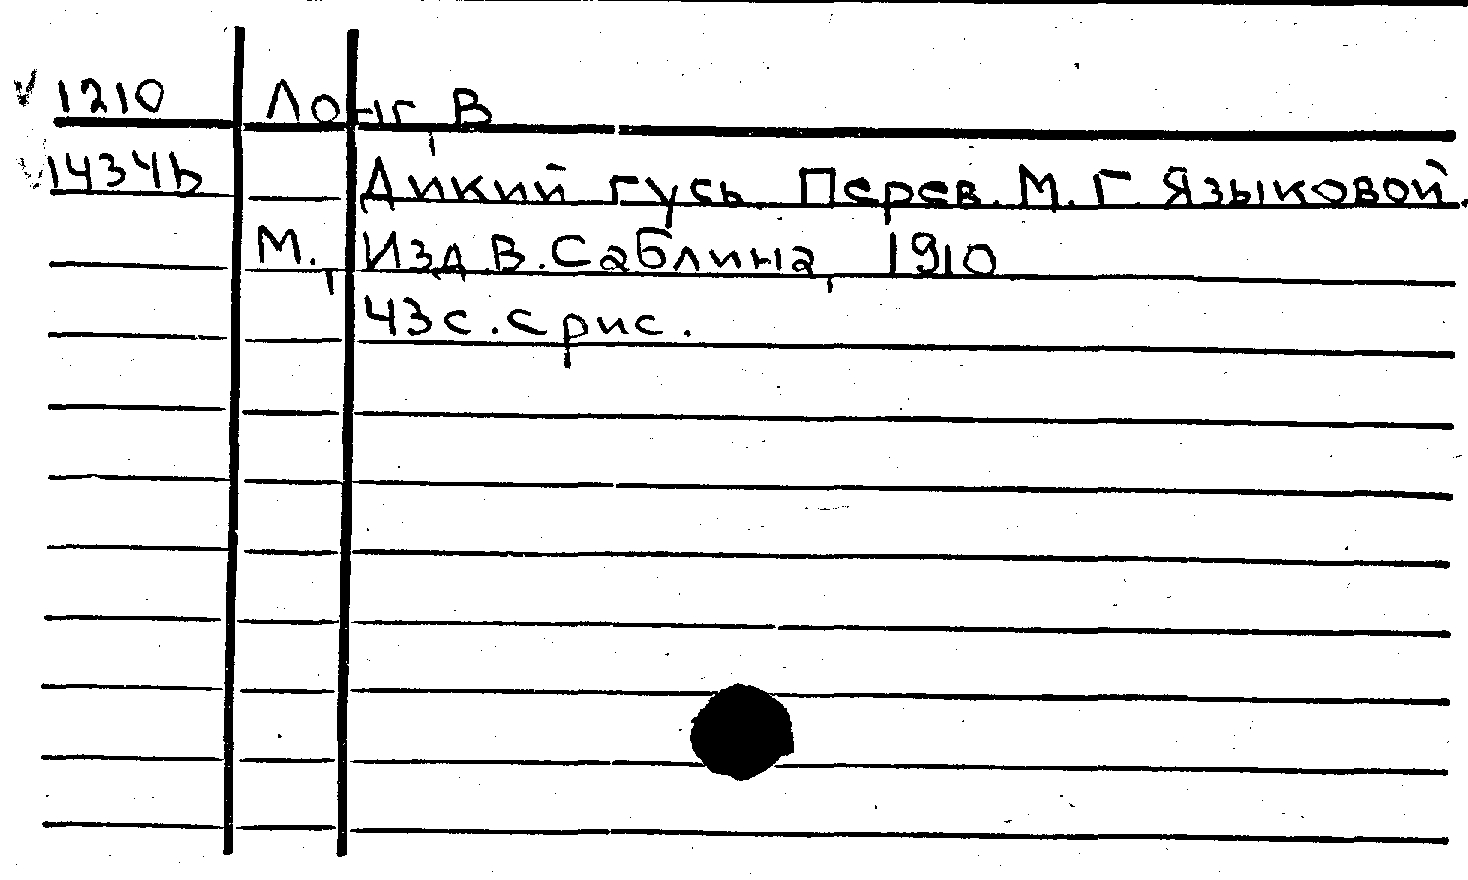 1210 Лонг, В
1434ь Дикий гусь. Перев. М. Г. Языковой.
М., Изд. В. Саблина, 1910
43 с. с рис.